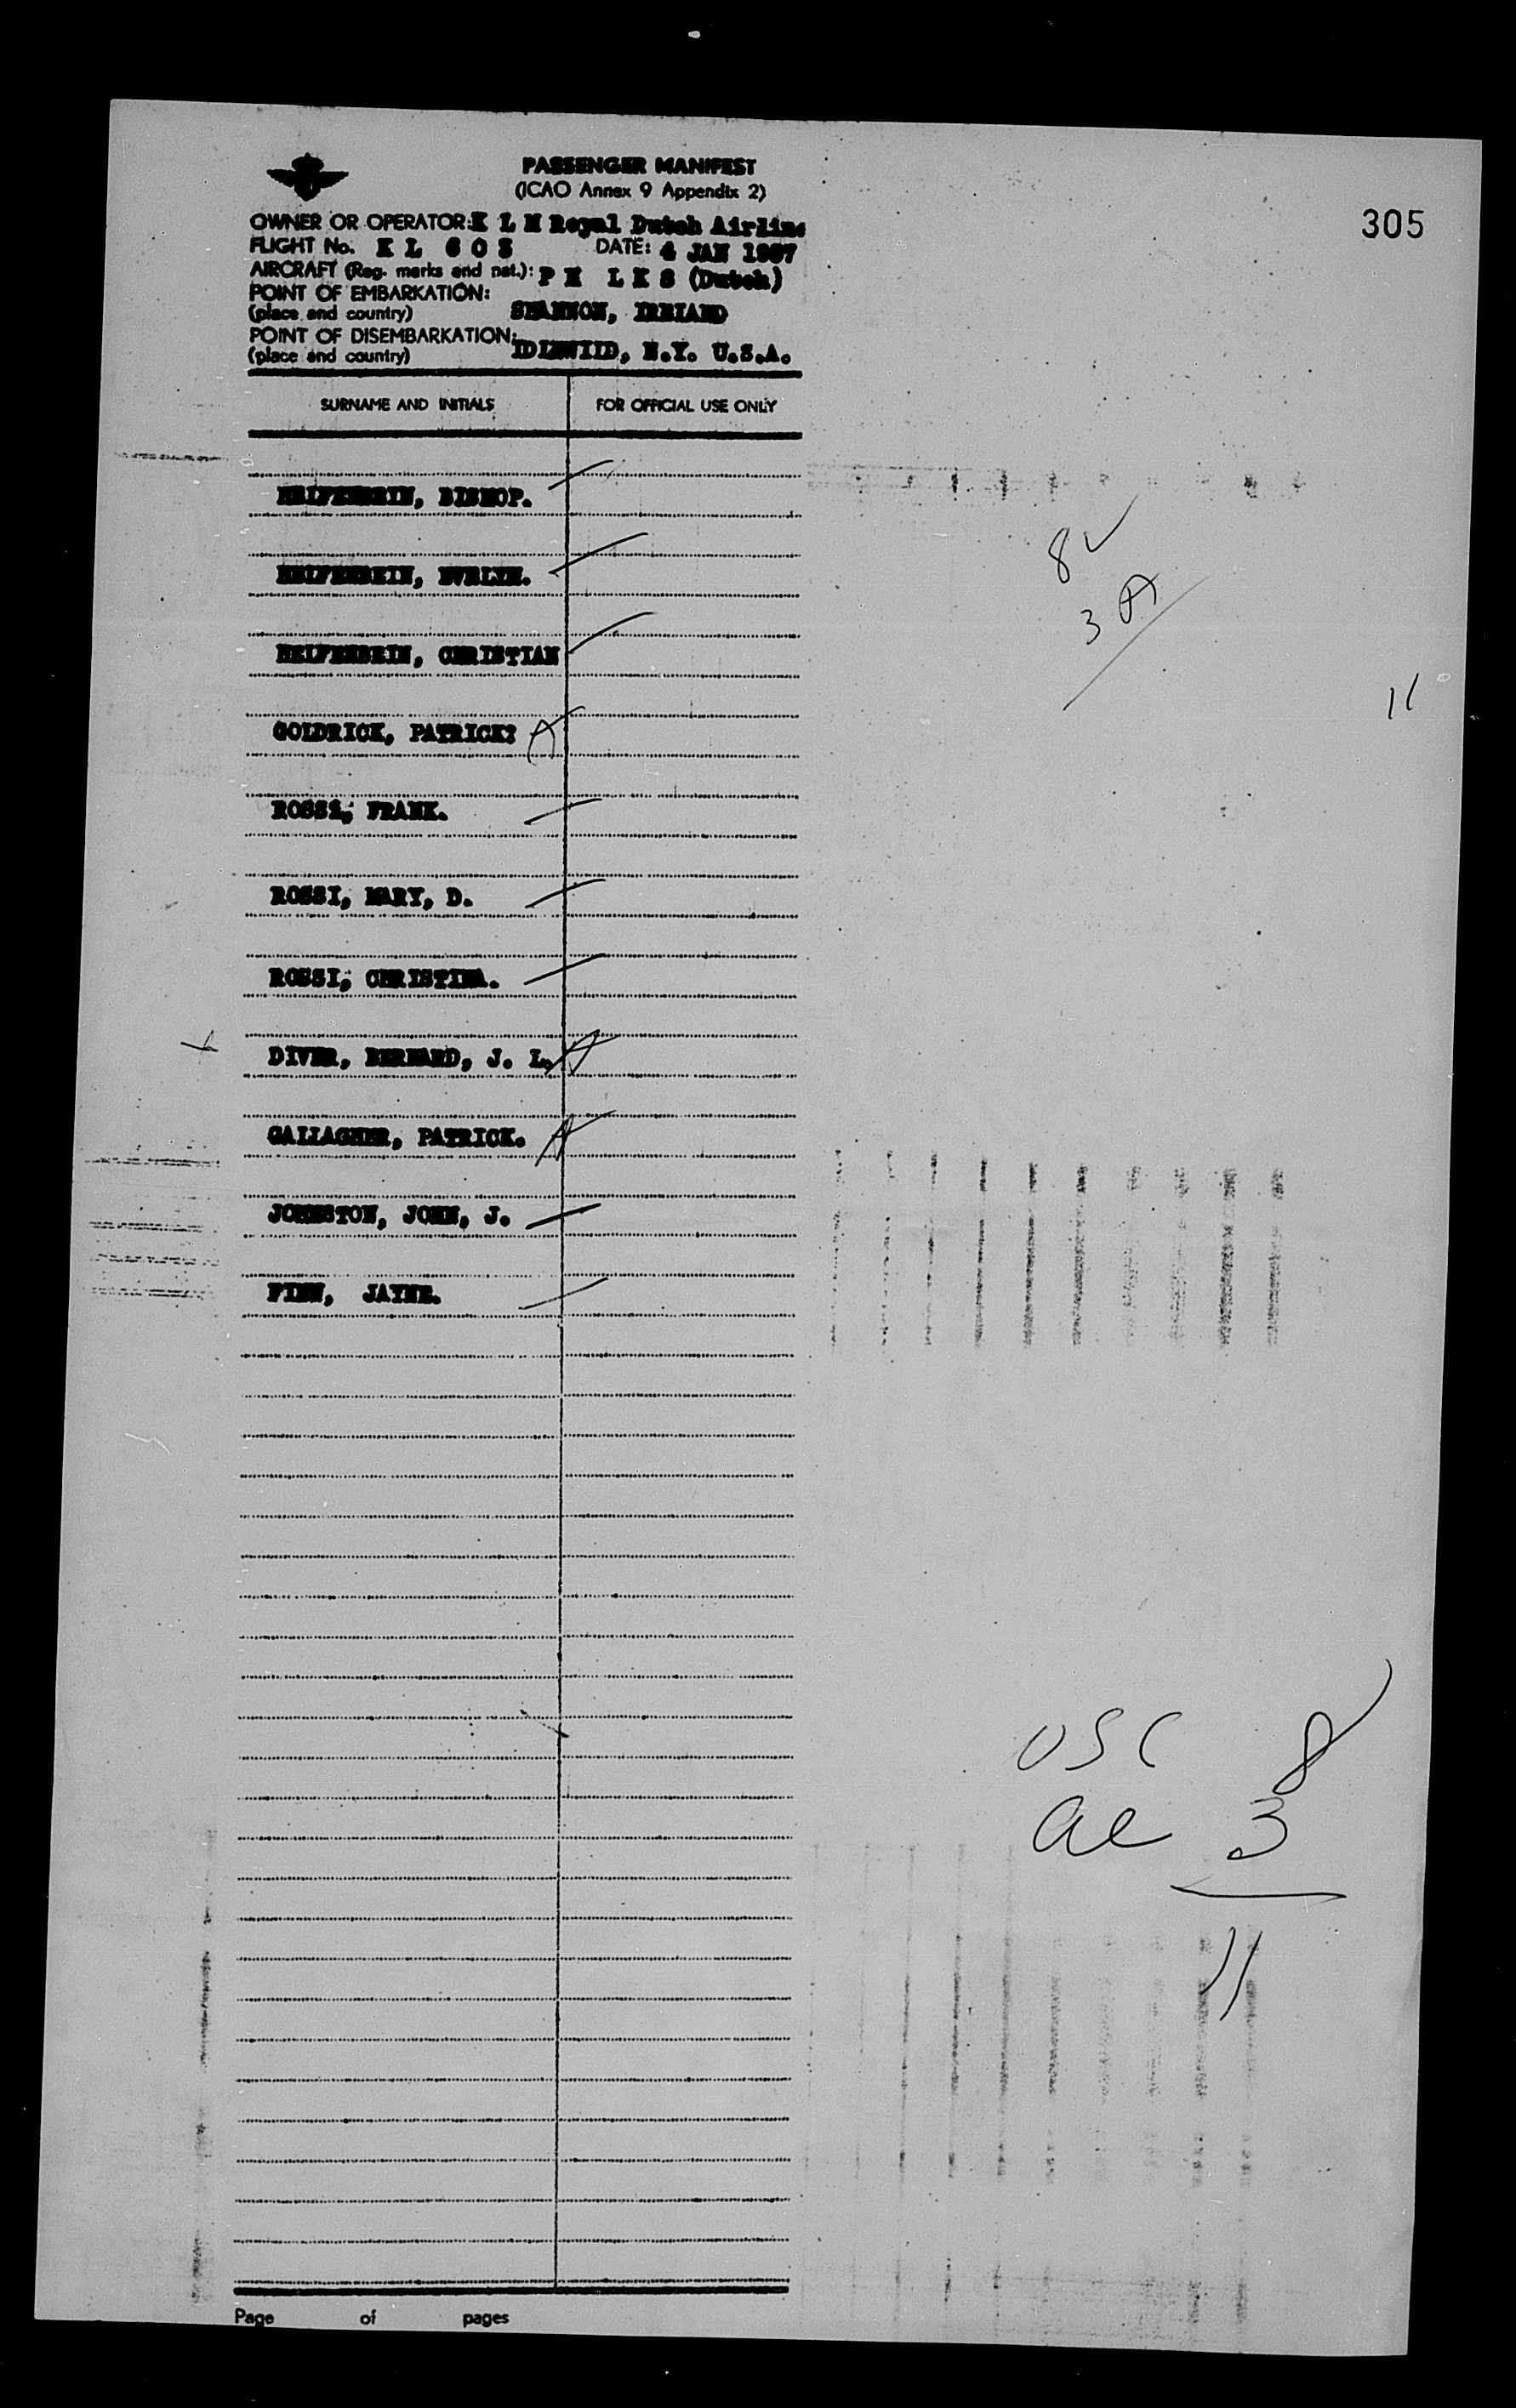 PASSENGER MANIFEST
(ICAO Annex 9 Appendix 2)
305
OWNER OR OPERATOR: K L M Royal Dutch Airline
FLIGHT No. K L 6 0 DATE: 4 JAN 1957
AIRCRAFT (Reg. marks and nat.): P H L K S (Dutch)
POINT OF EMBARKATION:
(place and country) SHANNON, IRELAND
POINT OF DISEMBARKATION:
(place and country) IDLEWILD, N.Y. U.S.A.
SURNAME AND INITIALS FOR OFFICIAL USE ONLY
HELFENBEIN, BISHOP.
HELFENBEIN, EVELYN.
HELFENBEIN, CHRISTIAN
GOLDRICK, PATRICK? A
ROSSI, FRANK.
ROSSI, MARY, D.
ROSSI, CHRISTINA.
DIVER, BERNARD, J. L. A
GALLAGHER, PATRICK. A
JOHNSTON, JOHN, J.
FINN, JAYNE.
8 ✓
3 A
11
USC 8
al 3
11
Page of pages